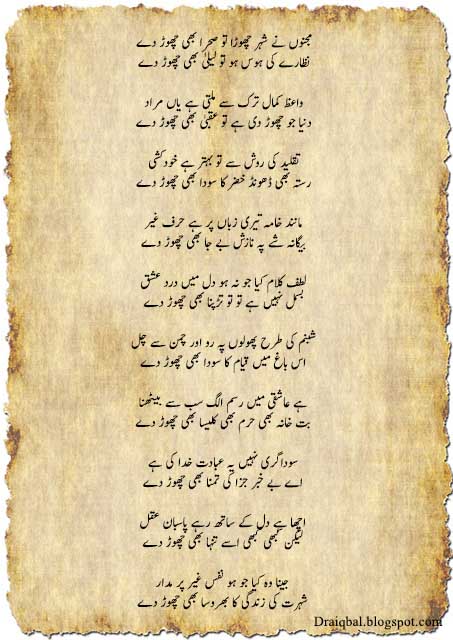 مجنوں نے شہر چھوڑا تو صحرا بھی چھوڑ دے
نظارے کی ہوس ہو تو لیلیٰ بھی چھوڑ دے
واعظ کمال ترک سے ملتی ہے یاں مراد
دنیا جو چھوڑ دی ہے تو عقبیٰ بھی چھوڑ دے
تقلید کی روش سے تو بہتر ہے خودکشی
رستہ بھی ڈھونڈ خضر کا سودا بھی چھوڑ دے
مانند خامہ تیری زباں پر ہے حرف غیر
بیگانہ شے پہ نازش بے جا بھی چھوڑ دے
لطف کلام کیا جو نہ ہو دل میں درد عشق
بسمل نہیں ہے تو تو تڑپنا بھی چھوڑ دے
شبنم کی طرح پھولوں پہ رو اور چمن سے چل
اس باغ میں قیام کا سودا بھی چھوڑ دے
ہے عاشقی میں رسم الگ سب سے بیٹھنا
بت خانہ بھی حرم بھی کلیسا بھی چھوڑ دے
سوداگری نہیں یہ عبادت خدا کی ہے
اے بے خبر جزا کی تمنا بھی چھوڑ دے
اچھا ہے دل کے ساتھ رہے پاسبان عقل
لیکن کبھی کبھی اسے تنہا بھی چھوڑ دے
جینا وہ کیا جو ہو نفس غیر پر مدار
شہرت کی زندگی کا بھروسا بھی چھوڑ دے
Draiqbal.blogspot.com